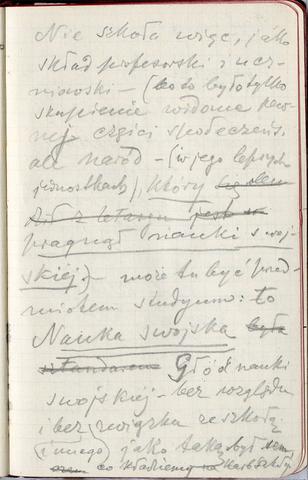 Nie szkoła więc, jako
skład profesorski i ucz-
niowski – (bo to było tylko
skupienie widome pew-
nej części społeczeńs.
ale naród – (w jego lepszych
jednostkach), który
jest
pragnął nauki swoj-
skiej) – może tu być przed-
miotem studyum: to
Nauka swojska była
Głód nauki
swojskiej – bez względu
i bez związku ze szkołą
(innego) jako taką był
co kładziemy na karb szkoły